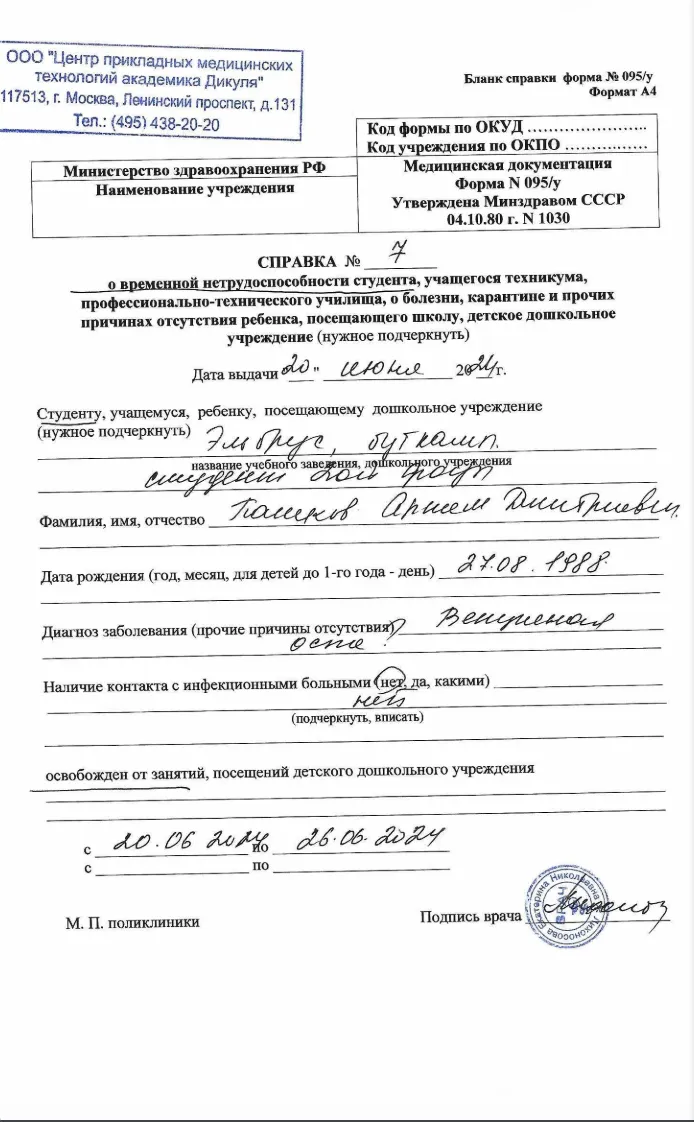 ООО "Центр прикладных медицинских
технологий академика Дикуля"
117513, г. Москва, Ленинский проспект, д.131
Тел.: (495) 438-20-20
Бланк справки форма № 095/у
Формат А4
Код формы по ОКУД ........................
Код учреждения по ОКПО ................
Министерство здравоохранения РФ
Наименование учреждения
Медицинская документация
Форма N 095/у
Утверждена Минздравом СССР
04.10.80 г. N 1030
СПРАВКА № 7
о временной нетрудоспособности студента, учащегося техникума,
профессионально-технического училища, о болезни, карантине и прочих
причинах отсутствия ребенка, посещающего школу, детское дошкольное
учреждение (нужное подчеркнуть)
Дата выдачи 20 " июня 2024 г.
Студенту, учащемуся, ребенку, посещающему дошкольное учреждение
(нужное подчеркнуть) Эльбрус, буткамп.
название учебного заведения, дошкольного учреждения
студент
Фамилия, имя, отчество Пашков Артем Дмитриевич
Дата рождения (год, месяц, для детей до 1-го года - день) 27.08.1988.
Диагноз заболевания (прочие причины отсутствия) Ветряная
оспа.
Наличие контакта с инфекционными больными (нет, да, какими)
нет
(подчеркнуть, вписать)
освобожден от занятий, посещений детского дошкольного учреждения
с 20.06 2024 по 26.06.2024
с по
М. П. поликлиники
Подпись врача
Лихоносова Екатерина Николаевна
ВРАЧ